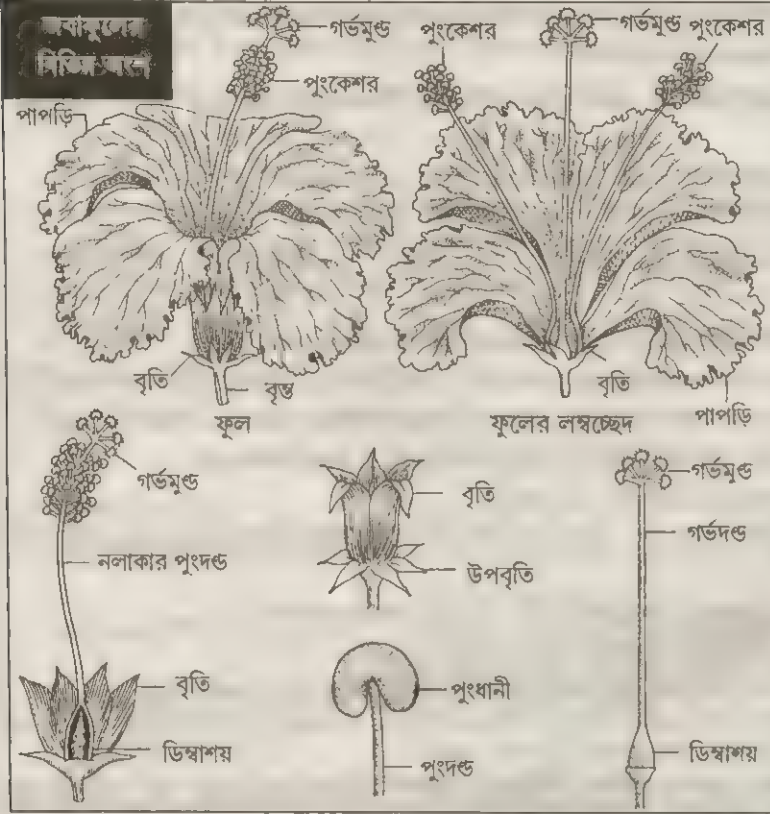 জবাফুলের
বিভিন্ন অংশ
গর্ভমুণ্ড
পুংকেশর
পাপড়ি
বৃতি
বৃন্ত
ফুল
পুংকেশর
গর্ভমুণ্ড
পুংকেশর
বৃতি
পাপড়ি
ফুলের লম্বচ্ছেদ
গর্ভমুণ্ড
নলাকার পুংদণ্ড
বৃতি
ডিম্বাশয়
বৃতি
উপবৃতি
পুংধানী
পুংদণ্ড
গর্ভমুণ্ড
গর্ভদণ্ড
ডিম্বাশয়